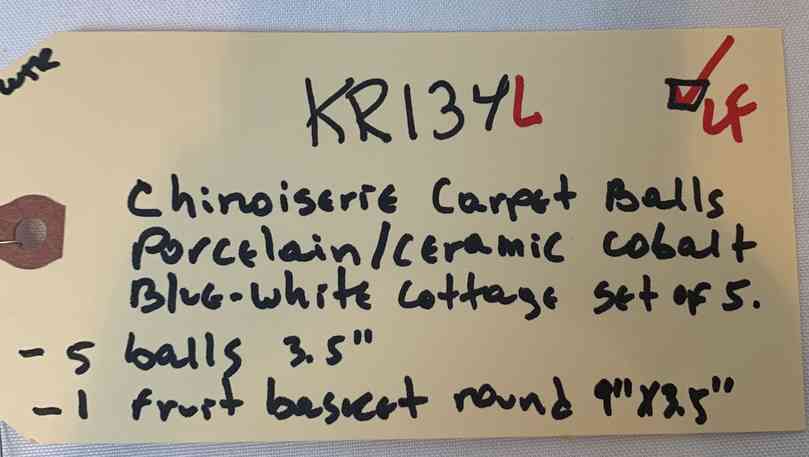 WTR
KR134L
LF
Chinoiserie Carpet Balls
Porcelain/ceramic cobalt
Blue-white cottage set of 5.
- 5 balls 3.5"
- 1 fruit basket round 9"x3.5"